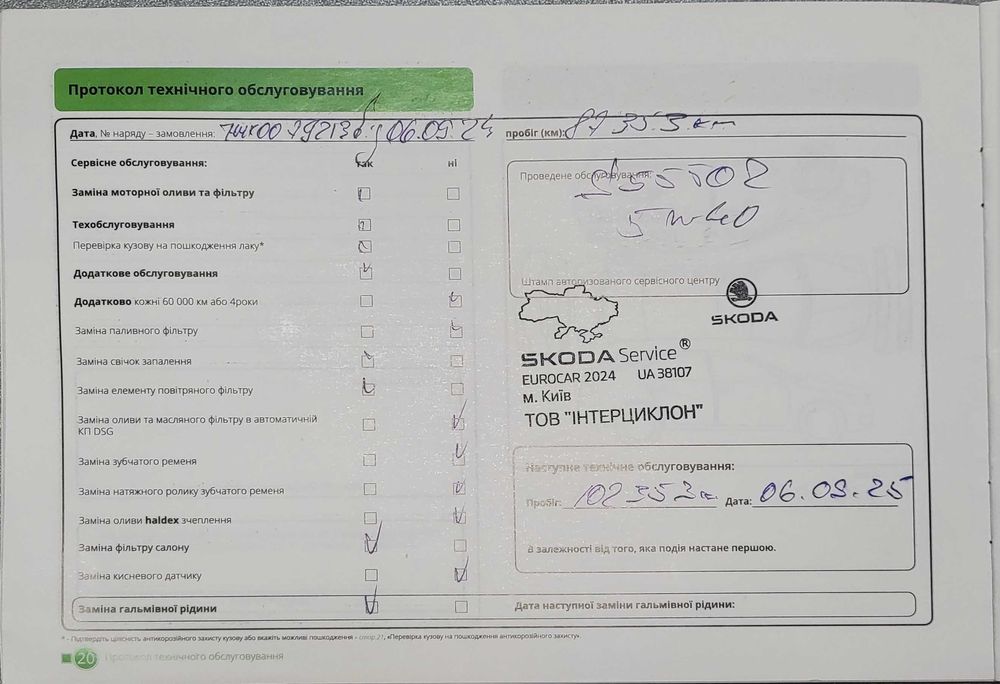 Протокол технічного обслуговування
Дата, № наряду – замовлення: 06.09.24 пробіг (км): 87 353 км
Сервісне обслуговування: так ні
Заміна моторної оливи та фільтру
Техобслуговування
Перевірка кузову на пошкодження лаку*
Додаткове обслуговування
Додатково кожні 60 000 км або 4роки
Заміна паливного фільтру
Заміна свічок запалення
Заміна елементу повітряного фільтру
Заміна оливи та масляного фільтру в автоматичній
КП DSG
Заміна зубчатого ременя
Заміна натяжного ролику зубчатого ременя
Заміна оливи haldex зчеплення
Заміна фільтру салону
Заміна кисневого датчику
Заміна гальмівної рідини
Проведене обслуговування:
5W40
Штамп авторизованого сервісного центру
SKODA
SKODA Service®
EUROCAR 2024 UA 38107
м. Київ
ТОВ "ІНТЕРЦИКЛОН"
Наступне технічне обслуговування:
Пробіг: 102 353 к Дата: 06.09.25
В залежності від того, яка подія настане першою.
Дата наступної заміни гальмівної рідини:
* - Підтвердіть цілісність антикорозійного захисту кузову або вкажіть можливі пошкодження – стор.21, «Перевірка кузову на пошкодження антикорозійного захисту».
20 Протокол технічного обслуговування